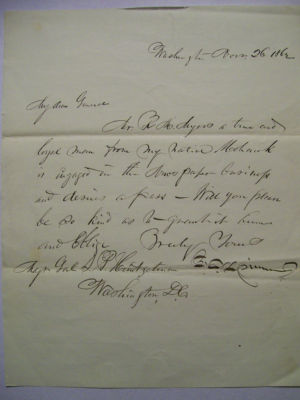 Washington Nov. 26 1862
My dear General
Mr. P. H. Myers a true and
loyal man from my native Mohawk
is engaged in the News paper business
and desires a pass - Will you please
be so kind as to grant it him
and Oblige Truly Yours
Major Genl S. P. Heintzelman
Washington, D.C.